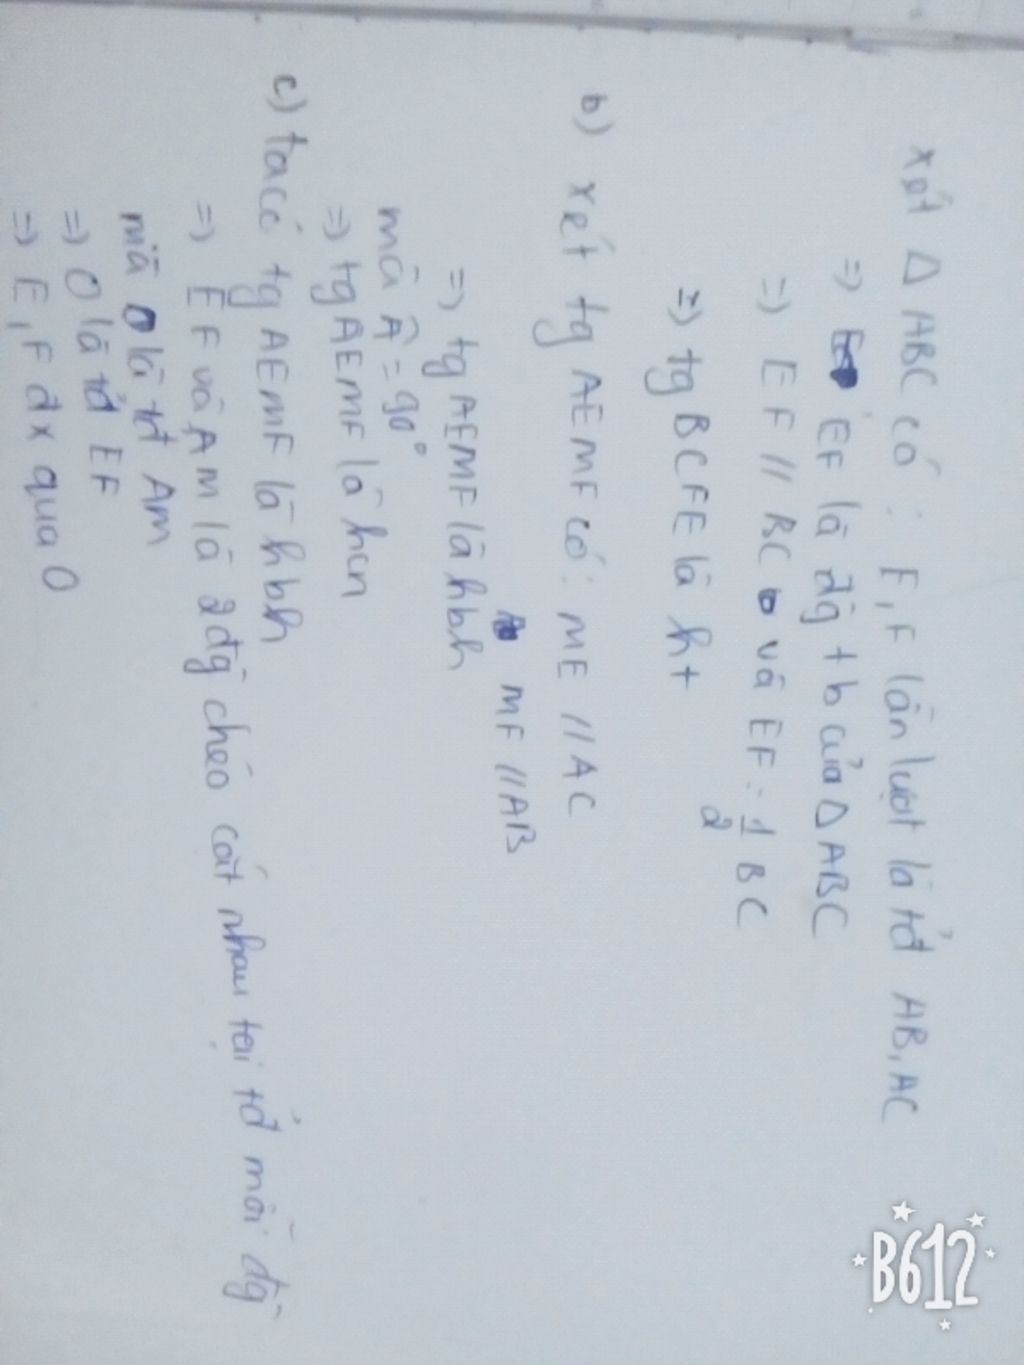 xét Δ ABC có : E, F lần lượt là tđ AB, AC
=> EF là đg tb của Δ ABC
=> EF // BC và EF = 1/2 BC
=> tg BCFE là ht
b) xét tg AEMF có: ME // AC
MF // AB
=> tg AEMF là hbh
mà Â = 90°
=> tg AEMF là hcn
c) ta có tg AEMF là hbh
=> EF và AM là 2 đg chéo cắt nhau tại tđ mỗi đg
mà O là tđ AM
=> O là tđ EF
=> E, F đx qua O
B612